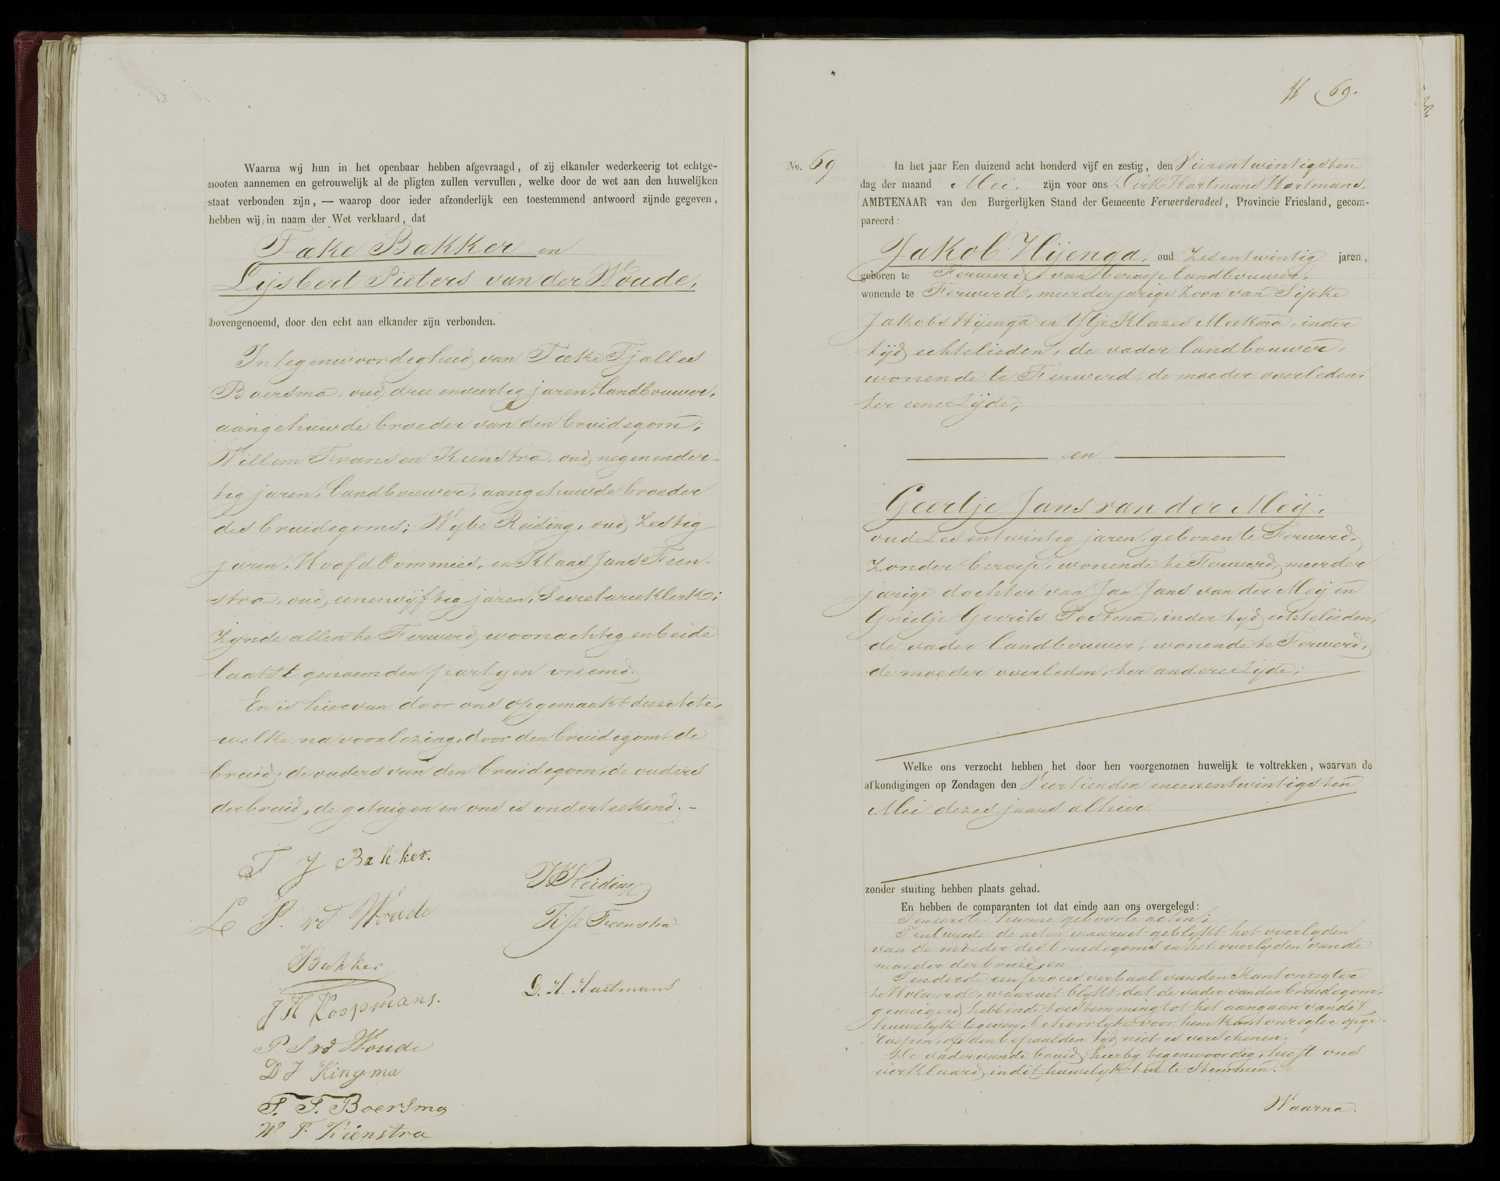 Waarna wij hun in het openbaar hebben afgevraagd, of zij elkander wederkeerig tot echtge-
nooten aannemen en getrouwelijk al de pligten zullen vervullen, welke door de wet aan den huwelijken
staat verbonden zijn, — waarop door ieder afzonderlijk een toestemmend antwoord zijnde gegeven,
hebben wij, in naam der Wet verklaard, dat
Take Bakker en
Lijsbert Pieters van der Woude,
bovengenoemd, door den echt aan elkander zijn verbonden.
In tegenwoordigheid van Tæke Tjalles
Boersma, oud drie en veertig jaren, landbouwer,
aangehuwde broeder van den bruidegom,
Willem Fransen Kienstra, oud negenender-
tig jaren, landbouwer, aangehuwde broeder
des bruidegoms; Wybe Reiding, oud zestig
jaren, Hoofd Commies, en Klaas Jans Feen-
stra, oud eenenvijftig jaren, Secretarieklerk;
Zijnde allen te Ferwerd woonachtig en beide
laatst genoemden partyen vreemd.
En is hiervan door ons opgemaakt deze acte,
welke na voorlezing, door den bruidegom, de
bruid, de ouders van den bruidegom, de ouders
der bruid, de getuigen en ons is onderteekend. -
T J Bakker.
L P. vd Woude
Bakker
J H Koopmans.
P S vd Woude
D J Kingma
T. T. Boersma
W F Kienstra
W Reiding
Feenstra
D. H. Hartmans
69.
No. 69
In het jaar Een duizend acht honderd vijf en zestig, den Vierentwintigsten
dag der maand Mei. zijn voor ons Dirk Hartmans Hartmans,
AMBTENAAR van den Burgerlijken Stand der Gemeente Ferwerderadeel, Provincie Friesland, gecom-
pareerd:
Jakob Hijenga, oud Zesentwintig jaren,
geboren te Ferwerd, van beroep landbouwer,
wonende te Ferwerd, meerderjarige zoon van Sipke
Jakobs Hijenga en Ytje Klazes Meekma, in der
tijd echtelieden, de vader landbouwer,
wonende te Ferwerd, de moeder overleden,
ter eenre zijde,
en
Geertje Jans van der Meij,
oud Zesentwintig jaren, geboren te Ferwerd,
zonder beroep, wonende te Ferwerd, meerder
jarige dochter van Jan Jans van der Meij en
Grietje Gerrits in der tijd echtelieden,
de vader landbouwer, wonende te Ferwerd,
de moeder overleden, ter andere zijde;
Welke ons verzocht hebben het door hen voorgenomen huwelijk te voltrekken, waarvan de
afkondigingen op Zondagen den Veertienden eenentwintigsten
Mei dezes jaars alhier
zonder stuiting hebben plaats gehad.
En hebben de comparanten tot dat einde aan ons overgelegd:
Ten eerste hunne geboorte acten;
Ten tweede de acten, waaruit geblijkt het overlyden
van de moeder des bruidegoms en het overlyden van de
moeder der bruid, en
Ten derde een proces verbaal van den Kantonregter
te Holwerd, waaruit blykt, dat de vader van den bruidegom,
geweigerd hebbende toestemming tot het aangaan van dit
huwelyk te geven, behoorlyk voor hem Kantonregter opge-
roepen, op den bepaalden dag niet is verschenen.
De vader van de bruid, hierby tegenwoordig, heeft ons
verklaard, in dit huwelyk toe te stemmen.
Waarna